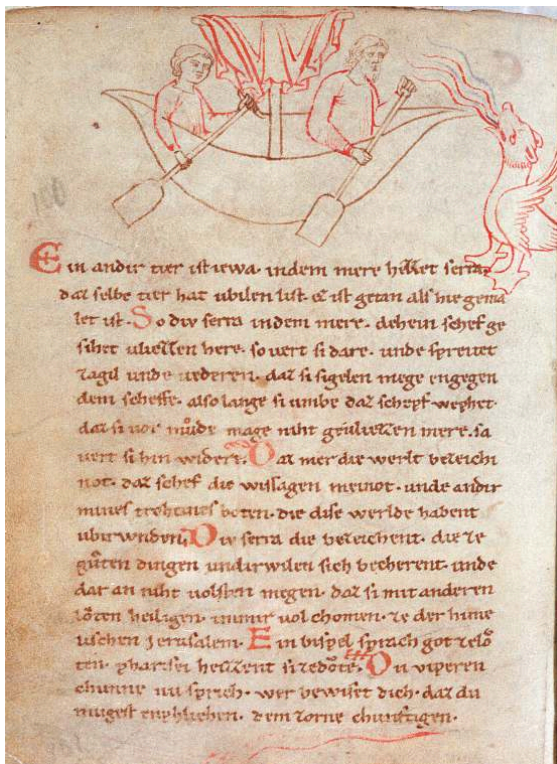 Ein andir tier ist iewa· indem mere heizzet serra·
daz selbe tier hat ubilen list· ez ist getan als hie gema
let ist· So div serra indem mere· dehein schef ge
sihet vliezzen here· so vert si dare· unde sprevtet
zagil unde vederen· daz si sigelen mege engegen
dem scheffe· also lange si umbe daz scheph wephet·
daz si vor můde mage niht gevliezzen mere· sa
vert si hin widere· Daz mer die werlt bezeichi
not· daz schef die wissagen meinot· unde andir
mines trohtines boten· die dise werlde habent
ubirwnden· Div serra die bezeichent· die ze
gůten dingen undirwilen sich becherent· unde
dar an niht volsten megen· daz si mit anderen
heiligen· immir vol chomen· ze der hime
lischen Jerusalem· Ein bispel sprach got ze
ten· pharisei heizzent si· On viperen
chunne nu sprich· wer bewiset dich· daz du
mugest enphliehen· dem zorne chunftigen·